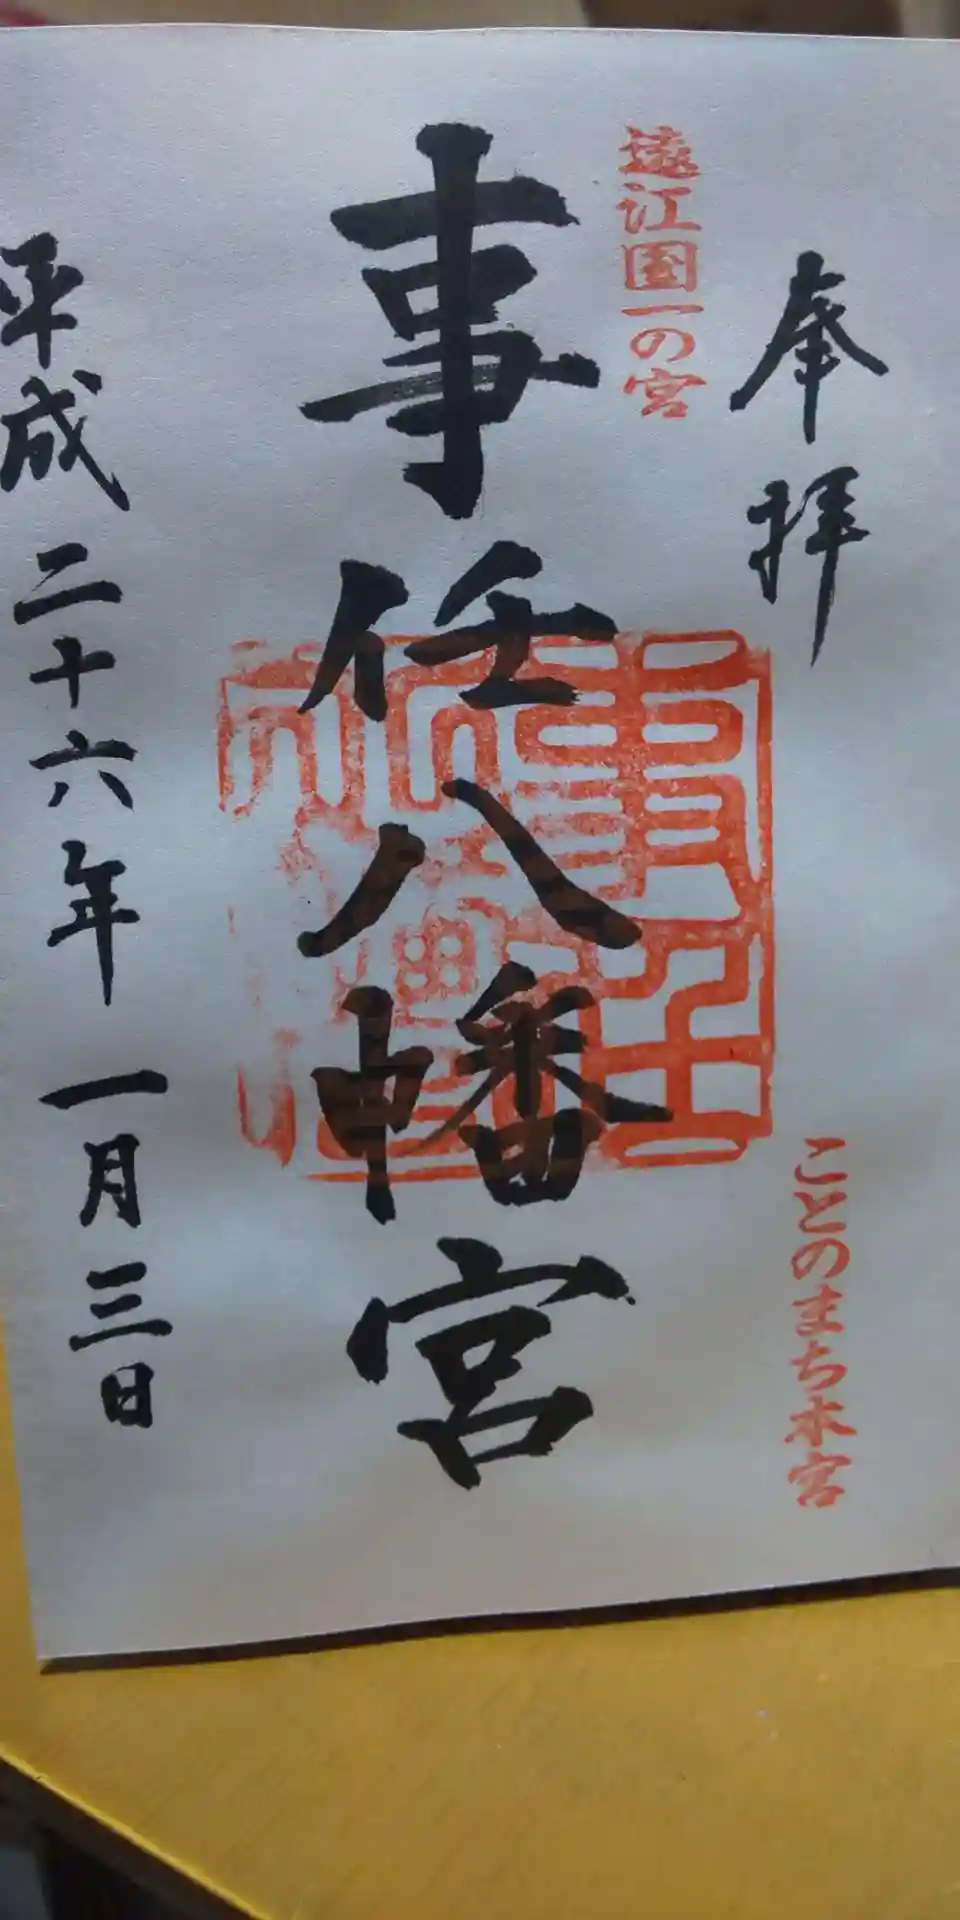 奉拝
ことのまち本宮
遠江国一の宮
事任八幡宮
平成二十六年一月三日